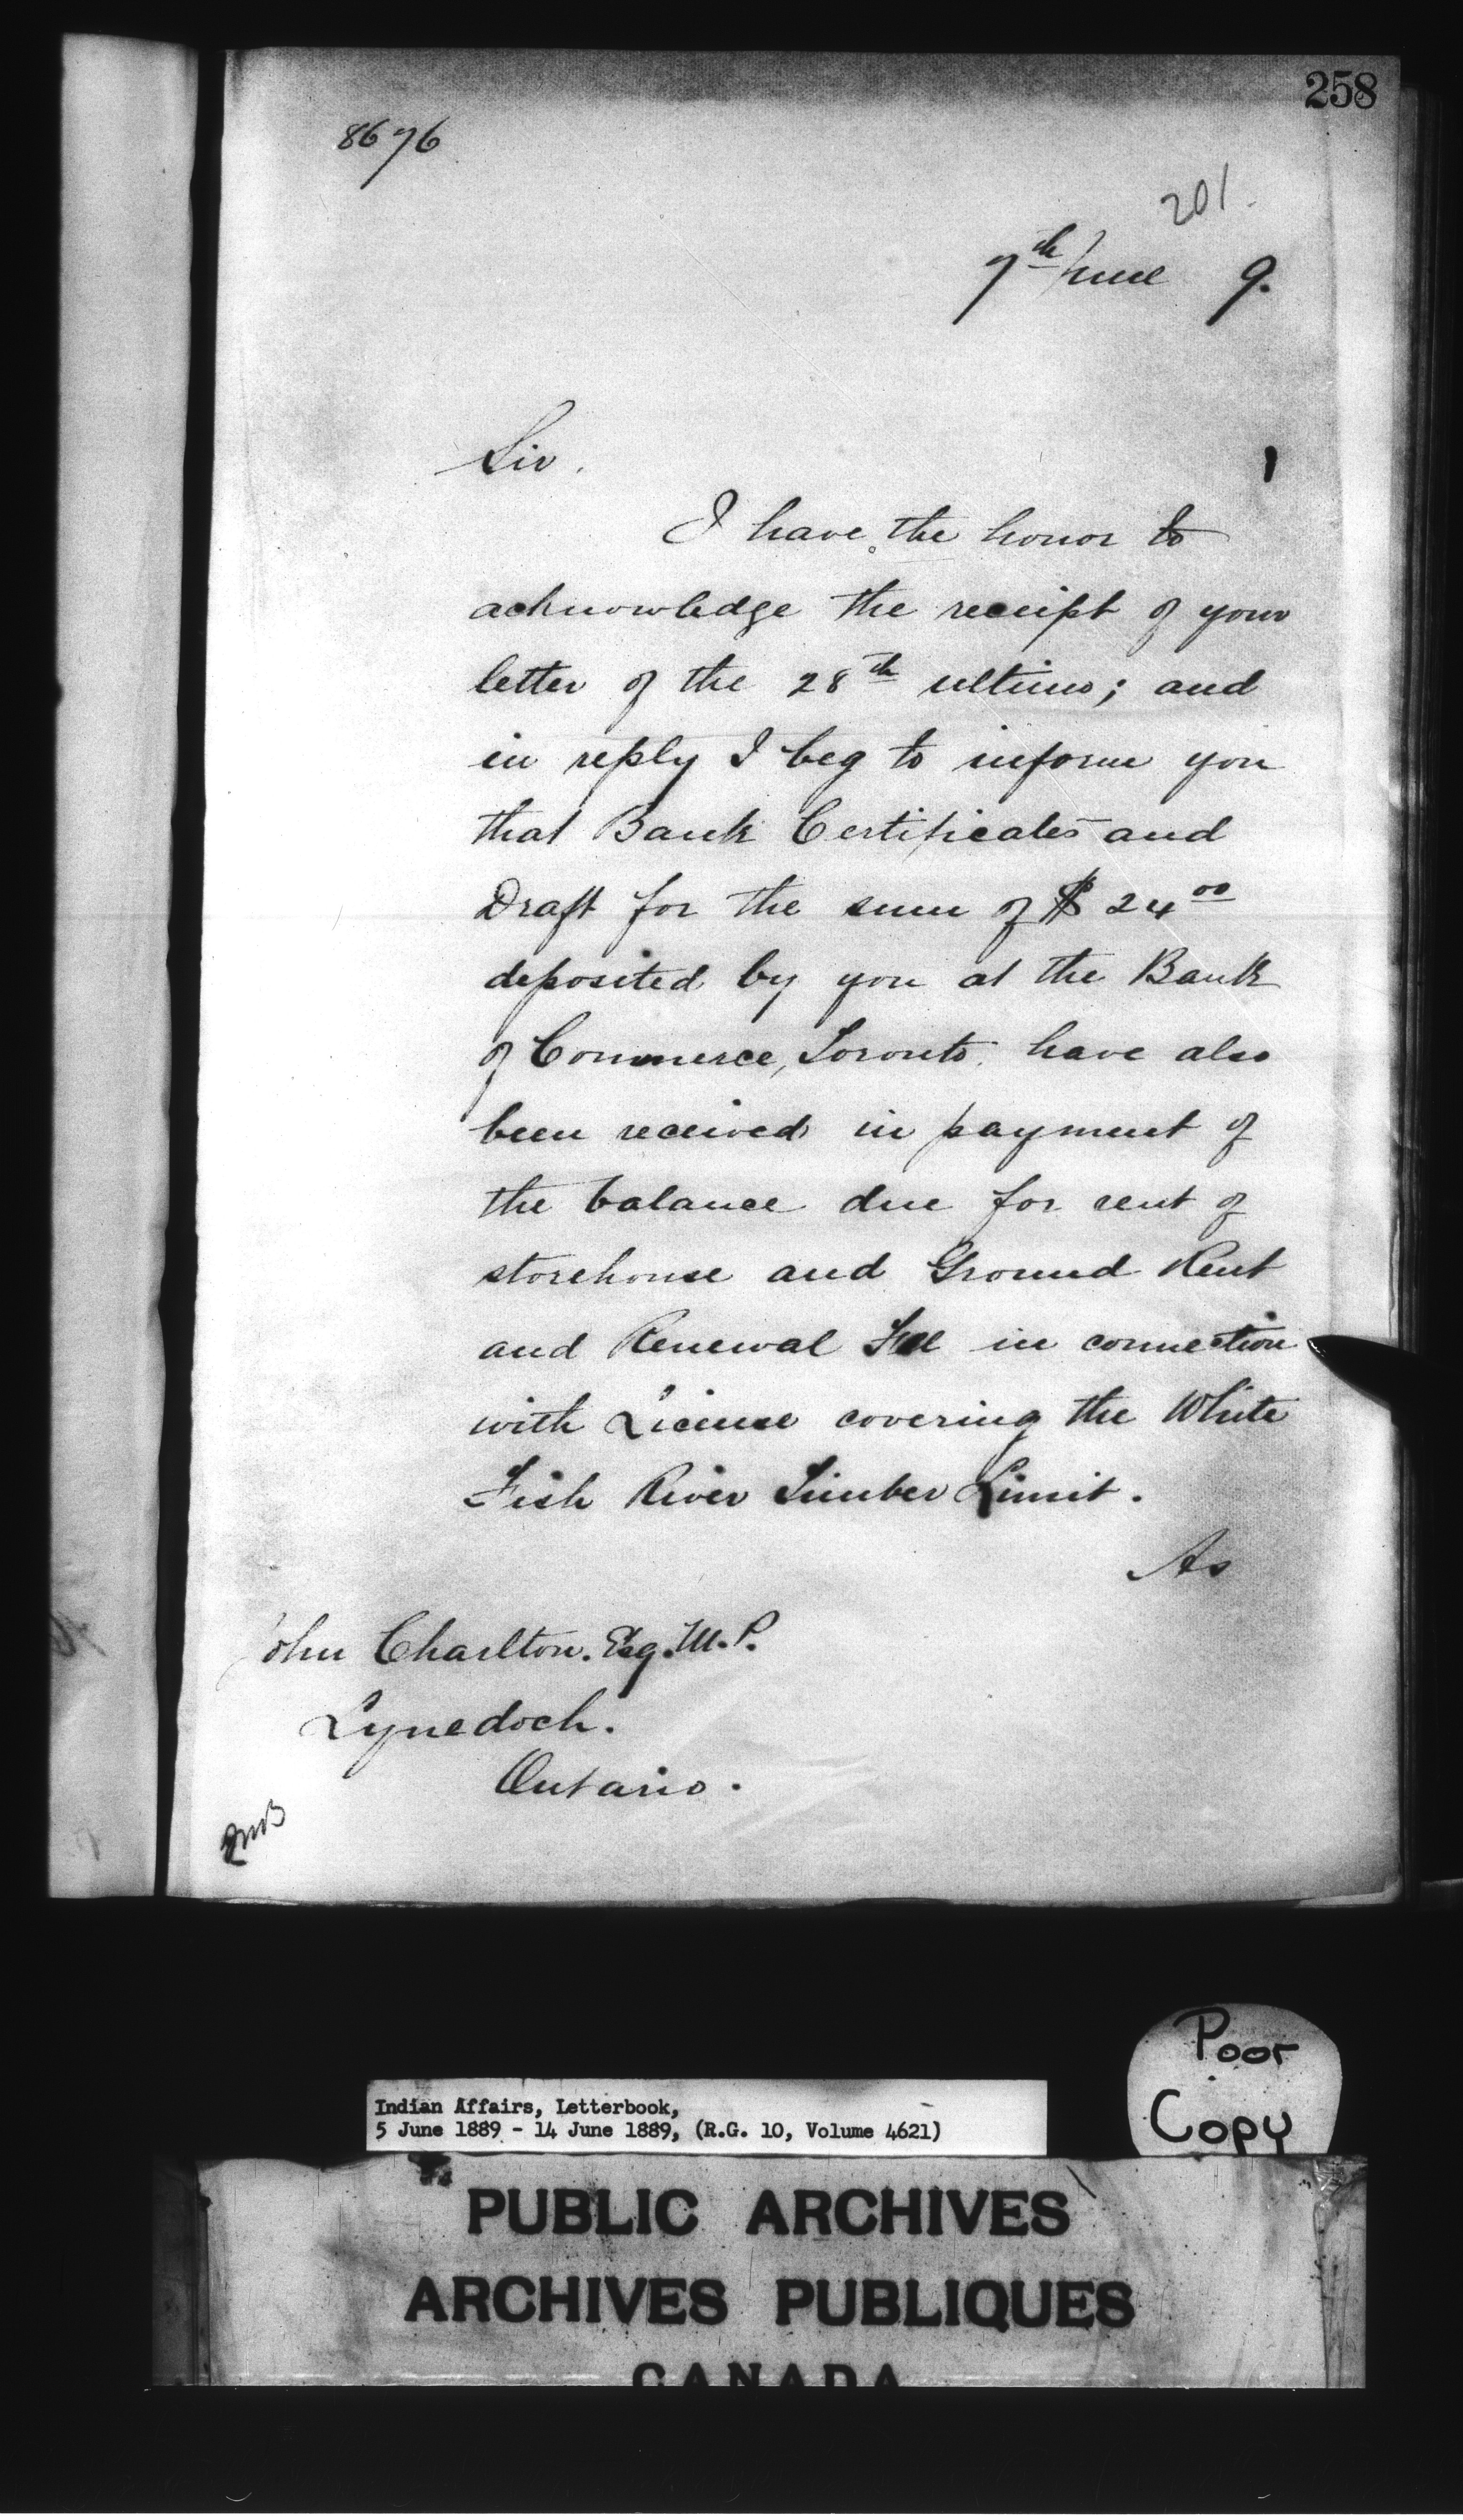 258
8676
201.
7th June 9.
Sir.
I have the honor to
acknowledge the receipt of your
letter of the 28th ultimo; and
in reply I beg to inform you
that Bank Certificates and
Draft for the sum of $ 24 00
deposited by you at the Bank
of Commerce, Toronto, have also
been received in payment of
the balance due for rent of
storehouse and Ground Rent
and Renewal Fee in connection
with License covering the White
Fish River Timber Limit.
As
John Charlton. Esq. M.P.
Lynedoch.
Ontario.
Poor
Copy
Indian Affairs, Letterbook,
5 June 1889 - 14 June 1889, (R.G. 10, Volume 4621)
PUBLIC ARCHIVES
ARCHIVES PUBLIQUES
CANADA